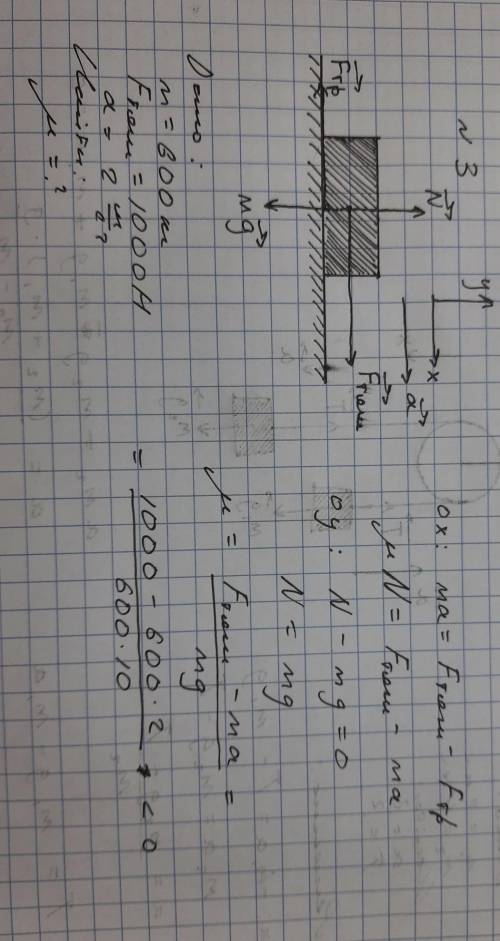 N 3
N
y
x
a
Fтр
Fтяги
mg
Дано:
m = 600 т
Fтяги = 1000 Н
a = 2 м/с²
Найти:
μ = ?
ox: ma = Fтяги - Fтр
μN = Fтяги - ma
oy: N - mg = 0
N = mg
μ = (Fтяги - ma) / mg =
= (1000 - 600·2) / (600·10) < 0